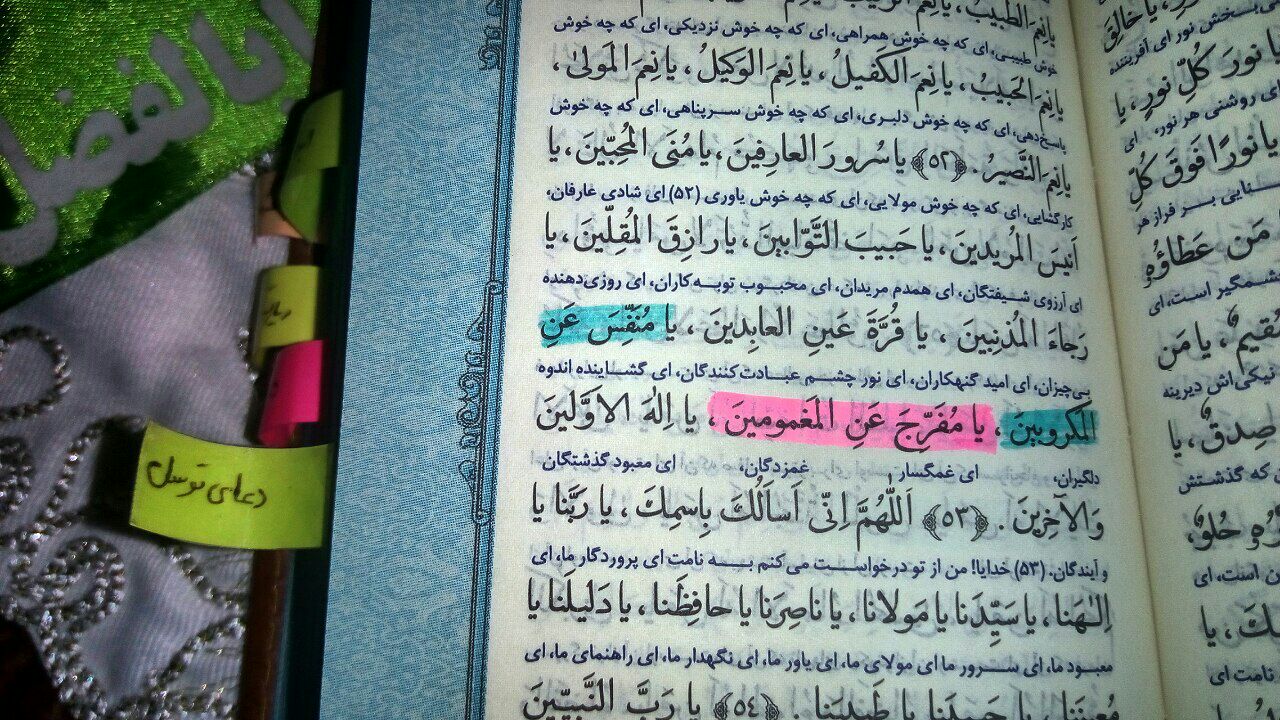 یا نِعمَ الطَّبیبُ، یا نِعمَ
خوش طبیبی، ای که چه خوش همراهی، ای که چه خوش نزدیکی، ای که چه خوش
یا نِعمَ الحَبیبُ، یا نِعمَ الکَفیلُ، یا نِعمَ الوَکیلُ، یا نِعمَ المَولیٰ،
پاسخ‌دهی، ای که چه خوش دلبری، ای که چه خوش سرپناهی، ای که چه خوش
یا نِعمَ النَّصیرُ. ﴿۵۲﴾ یا سُرورَ العارِفینَ، یا مُنَی المُحِبّینَ، یا
کارگشایی، ای که چه خوش مولایی، ای که چه خوش یاوری (۵۲) ای شادی عارفان،
اَنیسَ المُریدینَ، یا حَبیبَ التَّوّابینَ، یا رازِقَ المُقِلّینَ، یا
ای آرزوی شیفتگان، ای همدم مریدان، ای محبوب توبه‌کاران، ای روزی‌دهنده
رَجاءَ المُذنِبینَ، یا قُرَّةَ عَینِ العابِدینَ، یا مُنَفِّسَ عَنِ
بی‌چیزان، ای امید گنهکاران، ای نور چشم عبادت‌کنندگان، ای گشاینده اندوه
المَکروبینَ، یا مُفَرِّجَ عَنِ المَغمومینَ، یا اِلٰهَ الاَوَّلینَ
دلگیران، ای غمگسار غمزدگان، ای معبود گذشتگان
وَالآخِرینَ. ﴿۵۳﴾ اَللّٰهُمَّ اِنّی اَساَلُکَ بِاسمِکَ، یا رَبَّنا یا
و آیندگان. (۵۳) خدایا! من از تو درخواست می‌کنم به نامت ای پروردگار ما، ای
اِلٰهَنا، یا سَیِّدَنا یا مَولانا، یا ناصِرَنا یا حافِظَنا، یا دَلیلَنا یا
معبود ما، ای سرور ما ای مولای ما، ای یاور ما، ای نگهدار ما، ای راهنمای ما، ای
مُعینَنا، یا حَبیبَنا یا طَبیبَنا. ﴿۵۴﴾ یا رَبَّ النَّبیّینَ
یا خالِقَ
بخش نور ای آفریننده
یا نورَ کُلِّ نورٍ، یا
ای روشنی هر نور، ای
یا نورًا فَوقَ کُلِّ
بر فراز هر
مَن عَطاؤُهُ
چشمگیر است، ای
یا مَن
نیکی‌اش دیرینه
صِدقٌ، یا
که گذشتش
حُلوٌ،
است، ای
یا
نامت ای
اباالفضل
دعای توسل